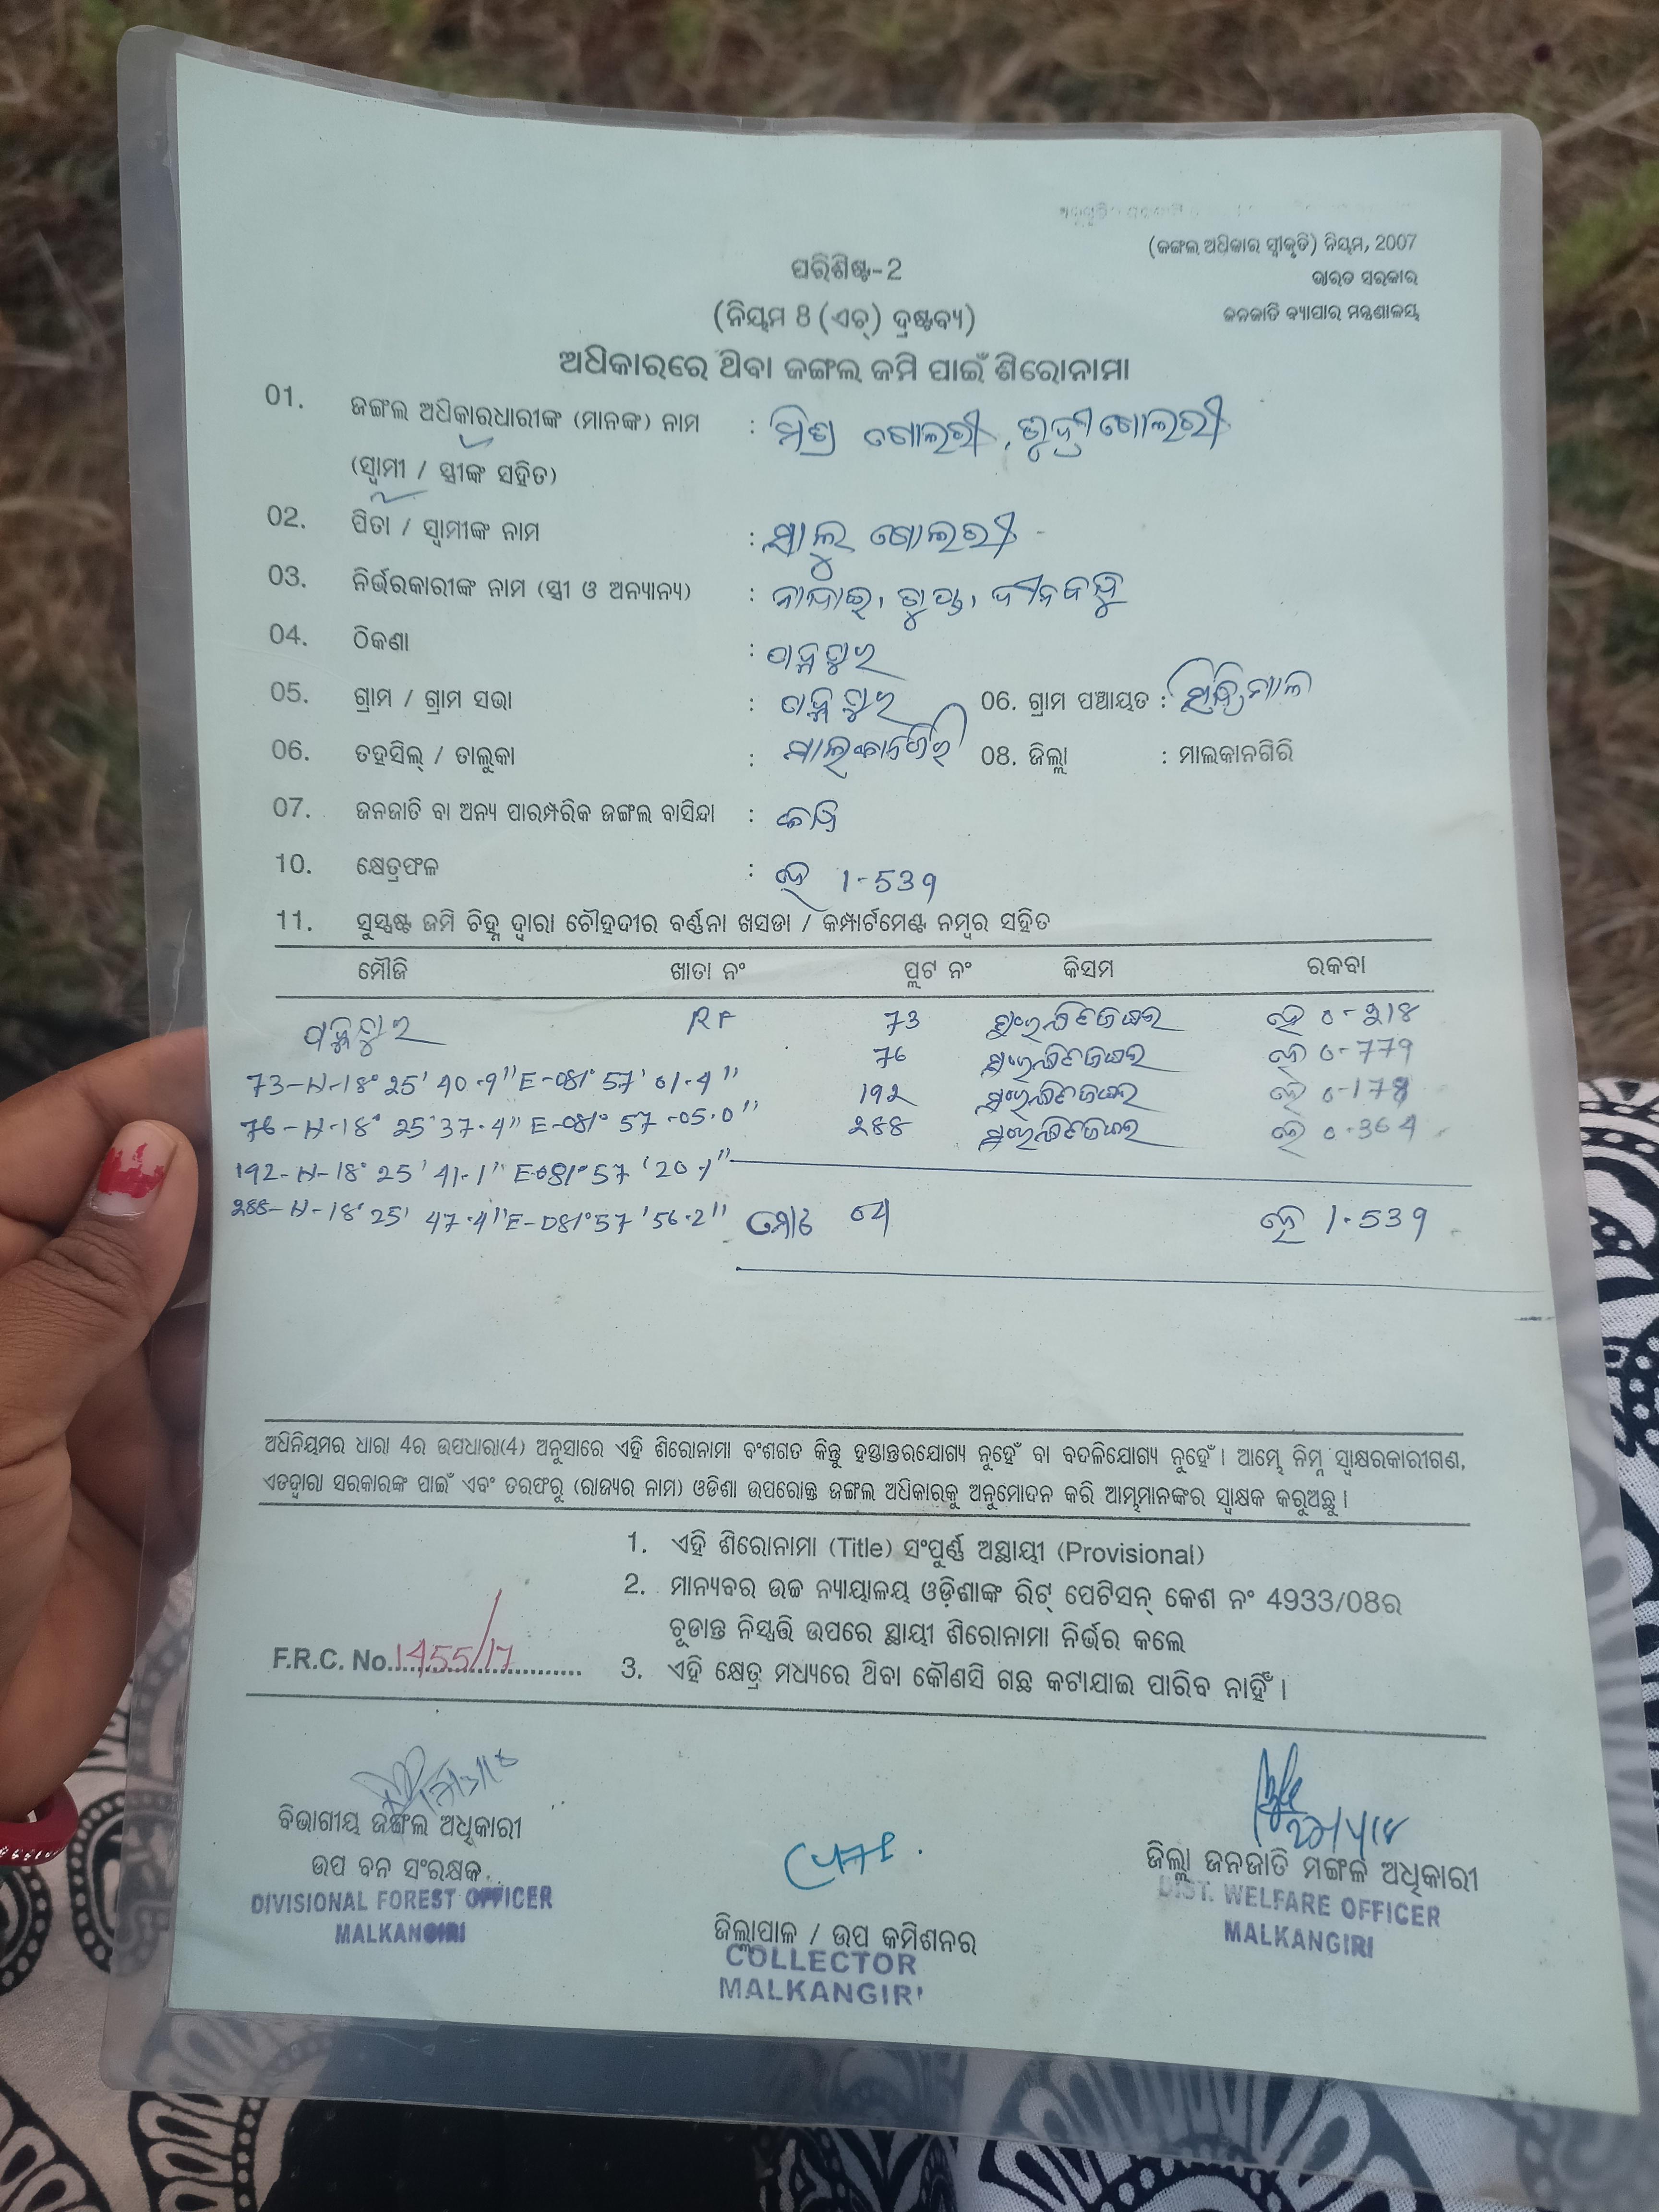 (ଜଙ୍ଗଲ ଅଧିକାର ସ୍ୱୀକୃତି) ନିୟମ, 2007
ଭାରତ ସରକାର
ଜନଜାତି ବ୍ୟାପାର ମନ୍ତ୍ରଣାଳୟ
ପରିଶିଷ୍ଟ-2
(ନିୟମ 8 (ଏଚ୍) ଦ୍ରଷ୍ଟବ୍ୟ)
ଅଧିକାରରେ ଥିବା ଜଙ୍ଗଲ ଜମି ପାଇଁ ଶିରୋନାମା
01. ଜଙ୍ଗଲ ଅଧିକାରଧାରୀଙ୍କ (ମାନଙ୍କ) ନାମ :
(ସ୍ୱାମୀ / ସ୍ତ୍ରୀଙ୍କ ସହିତ)
02. ପିତା / ସ୍ୱାମୀଙ୍କ ନାମ :
03. ନିର୍ଭରକାରୀଙ୍କ ନାମ (ସ୍ତ୍ରୀ ଓ ଅନ୍ୟାନ୍ୟ) :
04. ଠିକଣା :
05. ଗ୍ରାମ / ଗ୍ରାମ ସଭା : 06. ଗ୍ରାମ ପଞ୍ଚାୟତ :
06. ତହସିଲ୍ / ତାଲୁକା : ମାଲକାନଗିରି 08. ଜିଲ୍ଲା : ମାଲକାନଗିରି
07. ଜନଜାତି ବା ଅନ୍ୟ ପାରମ୍ପରିକ ଜଙ୍ଗଲ ବାସିନ୍ଦା :
10. କ୍ଷେତ୍ରଫଳ : ହେ 1-539
11. ସୁସ୍ପଷ୍ଟ ଜମି ଚିହ୍ନ ଦ୍ୱାରା ଚୌହଦୀର ବର୍ଣ୍ଣନା ଖସଡା / କମ୍ପାର୍ଟମେଣ୍ଟ ନମ୍ବର ସହିତ
ମୌଜି ଖାତା ନଂ ପ୍ଲଟ ନଂ କିସମ ରକବା
RF 73 ହେ 0-218
76 ହେ 0-779
73-N-18° 25' 40.9" E-081° 57' 01.4"
192 ହେ 0-178
76-N-18° 25' 37.4" E-081° 57-05.0"
288 ହେ 0-364
192-N-18° 25' 41.1" E-081° 57' 20.1"
288-N-18° 25' 47.4" E-081° 57' 56.2" ମୋଟ ହେ 1.539
ଅଧିନିୟମର ଧାରା 4ର ଉପଧାରା(4) ଅନୁସାରେ ଏହି ଶିରୋନାମା ବଂଶଗତ କିନ୍ତୁ ହସ୍ତାନ୍ତରଯୋଗ୍ୟ ନୁହେଁ ବା ବଦଳିଯୋଗ୍ୟ ନୁହେଁ । ଆମ୍ଭେ ନିମ୍ନ ସ୍ୱାକ୍ଷରକାରୀଗଣ,
ଏତଦ୍ୱାରା ସରକାରଙ୍କ ପାଇଁ ଏବଂ ତରଫରୁ (ରାଜ୍ୟର ନାମ) ଓଡିଶା ଉପରୋକ୍ତ ଜଙ୍ଗଲ ଅଧିକାରକୁ ଅନୁମୋଦନ କରି ଆମ୍ଭମାନଙ୍କର ସ୍ୱାକ୍ଷକ କରୁଅଛୁ ।
1. ଏହି ଶିରୋନାମା (Title) ସଂପୂର୍ଣ୍ଣ ଅସ୍ଥାୟୀ (Provisional)
2. ମାନ୍ୟବର ଉଚ୍ଚ ନ୍ୟାୟାଳୟ ଓଡ଼ିଶାଙ୍କ ରିଟ୍ ପେଟିସନ୍ କେଶ ନଂ 4933/08ର
ଚୂଡାନ୍ତ ନିସ୍ପତ୍ତି ଉପରେ ସ୍ଥାୟୀ ଶିରୋନାମା ନିର୍ଭର କଲେ
F.R.C. No. 1455/17
3. ଏହି କ୍ଷେତ୍ର ମଧ୍ୟରେ ଥିବା କୌଣସି ଗଛ କଟାଯାଇ ପାରିବ ନାହିଁ ।
ବିଭାଗୀୟ ଜଙ୍ଗଲ ଅଧିକାରୀ
ଉପ ବନ ସଂରକ୍ଷକ
DIVISIONAL FOREST OFFICER
MALKANGIRI
ଜିଲ୍ଲାପାଳ / ଉପ କମିଶନର
COLLECTOR
MALKANGIRI
ଜିଲ୍ଲା ଜନଜାତି ମଙ୍ଗଳ ଅଧିକାରୀ
DIST. WELFARE OFFICER
MALKANGIRI